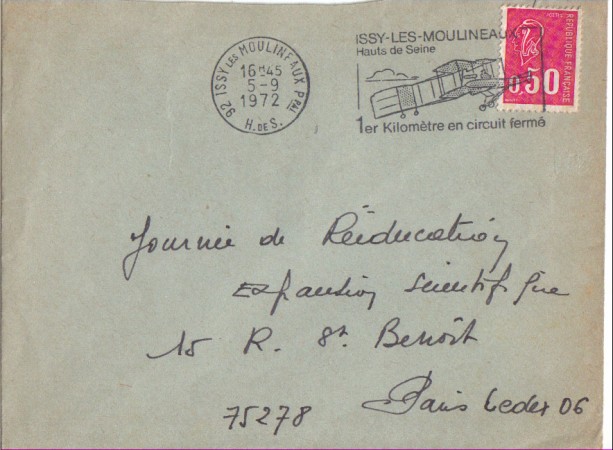 92 ISSY LES MOULINEAUX PPAL
16H45
5-9
1972
H. DE S.
ISSY-LES-MOULINEAUX
Hauts de Seine
1er Kilomètre en circuit fermé
RÉPUBLIQUE FRANÇAISE
POSTES
0,50
Journée de Rééducation
Expansion Scientifique
15 R. St Benoît
Paris Cedex 06
75278